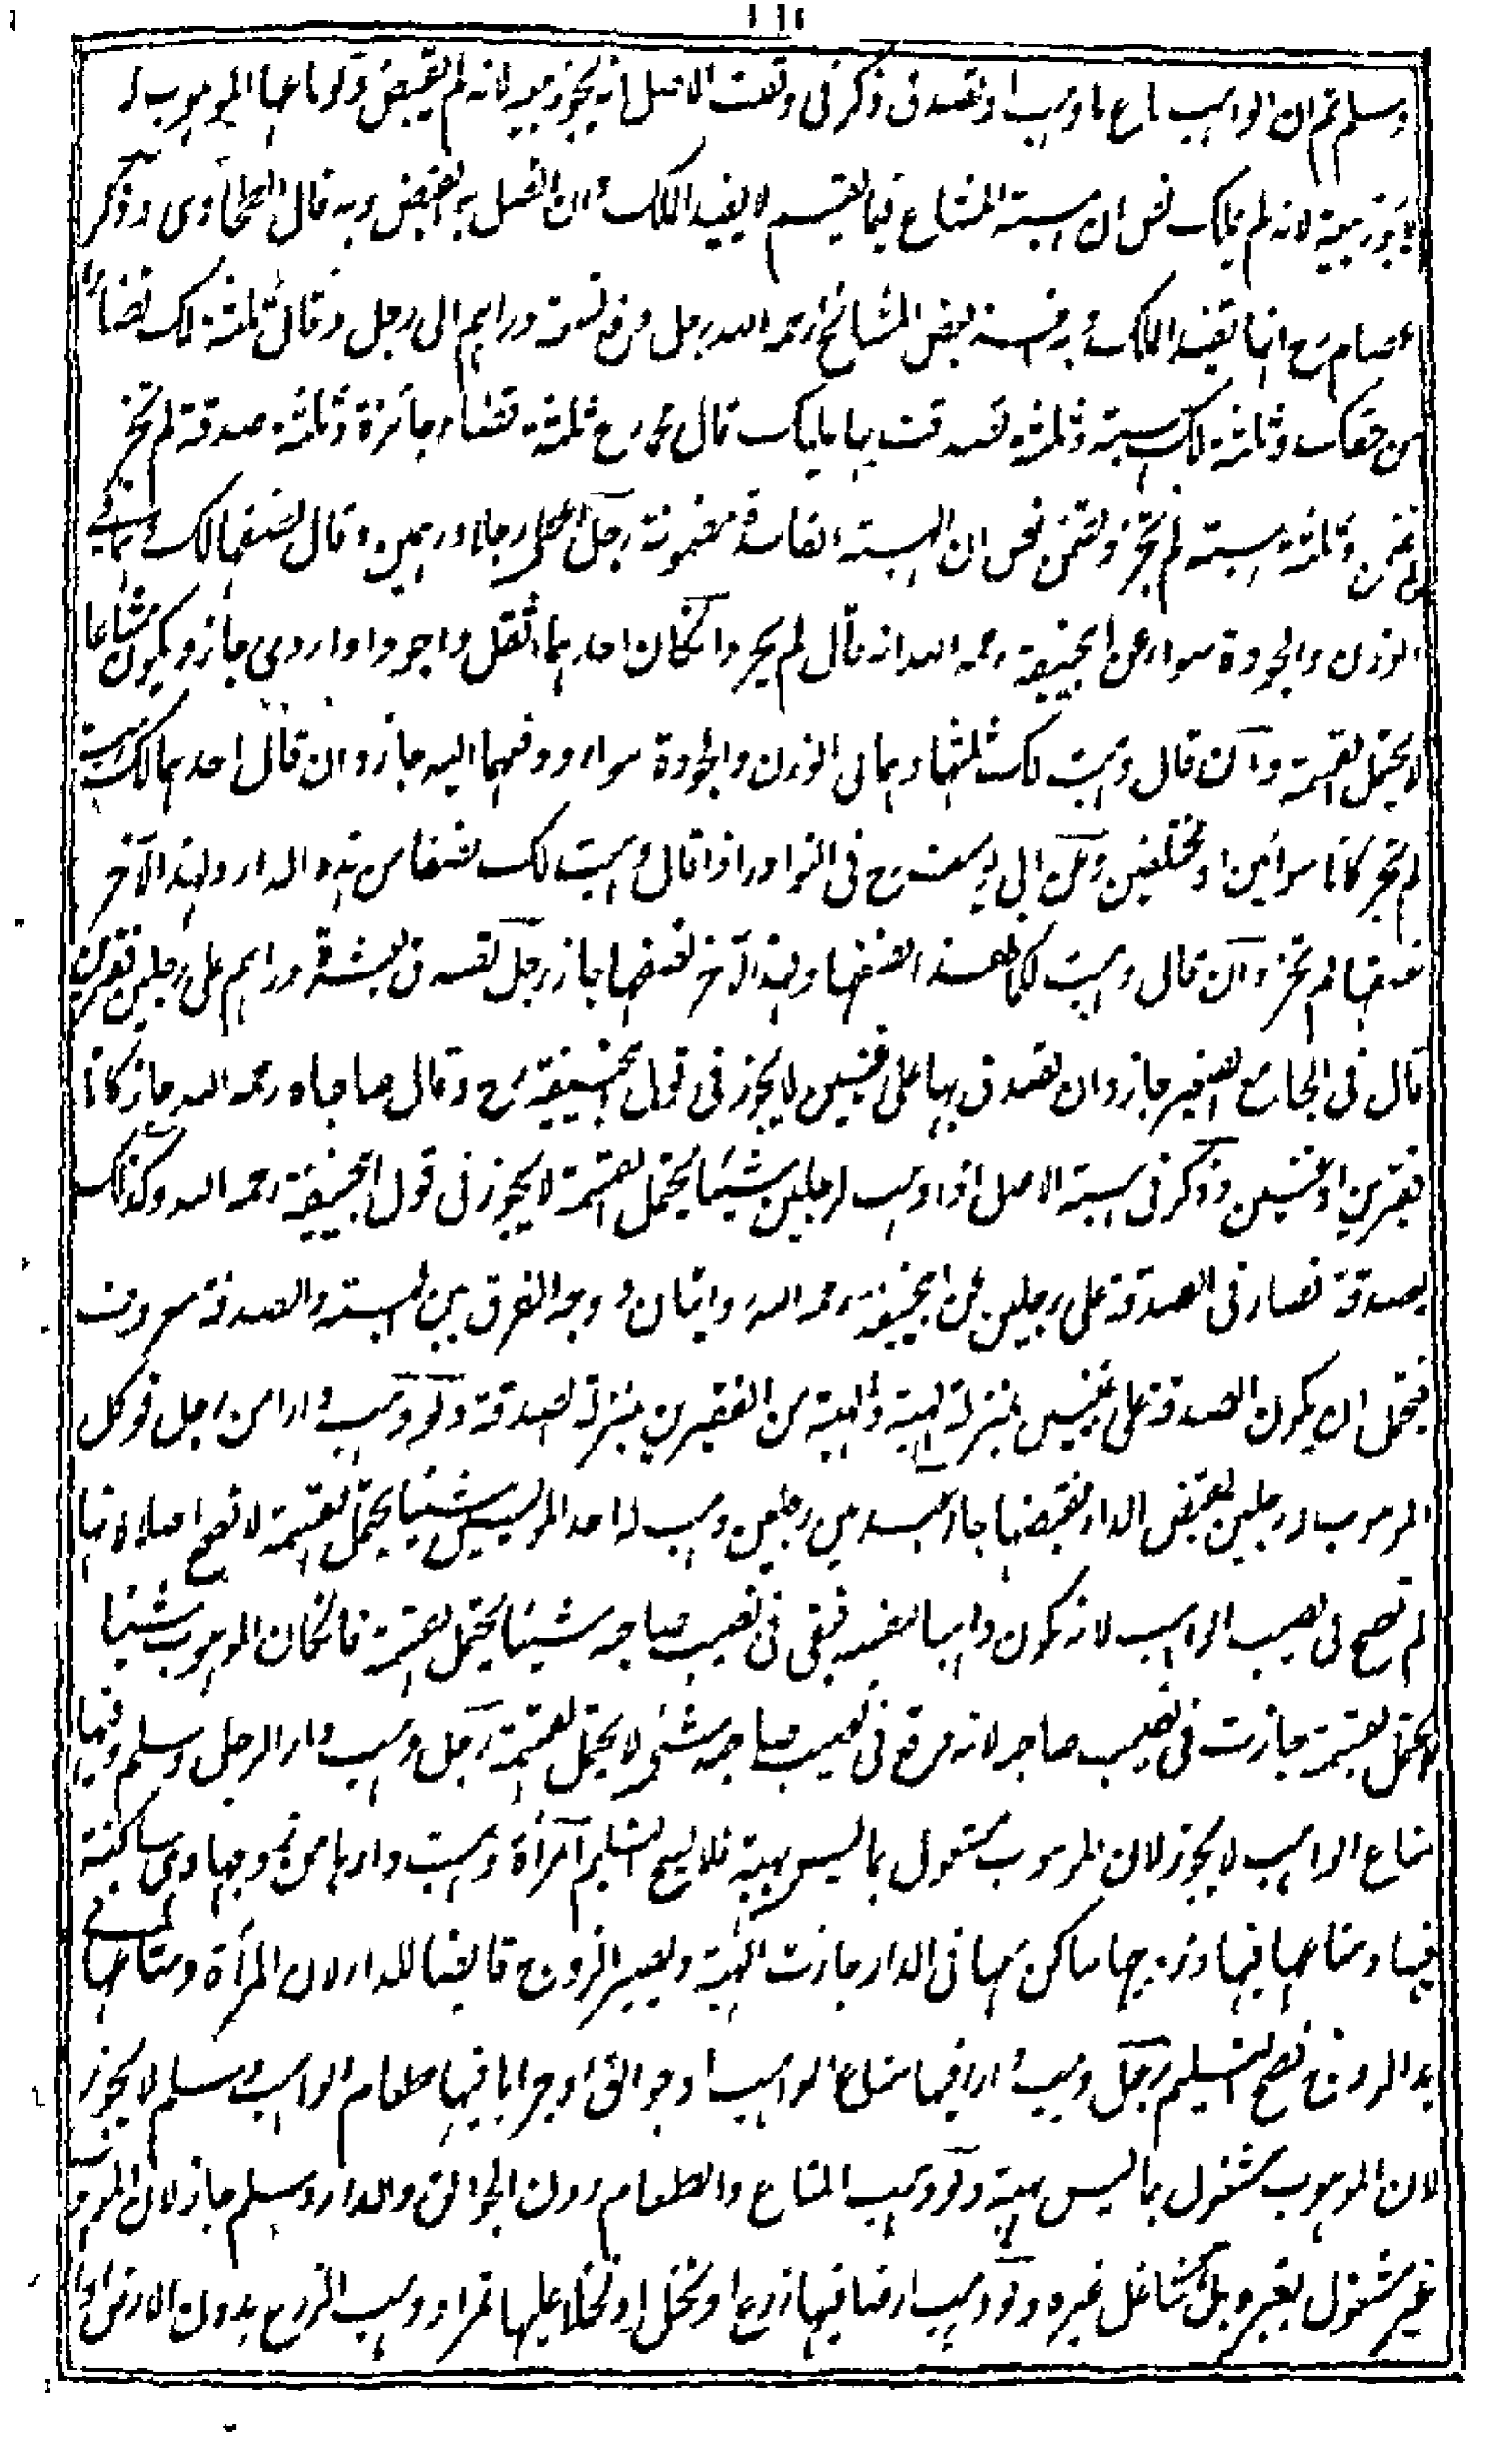 وسلم ثم ان الواهب باع ما وهب او تصدق ذكر فى وقف الاصل انه يجوز بيعه لانه لم يقبض ولو باعها الموهوب له
لا يجوز بيعه لانه لم يملك نص ان هبة المشاع فيما يقسم لا يفيد الملك وان اتصل به القبض وبه قال الطحاوى وذكر
عصام رح انها تفيد الملك وبه بعض المشائخ رحمه الله رجل دفع تسعة دراهم الى رجل وقال ثلثة لك قضاء
من حقك وثلثة لك هبة وثلثة تصدقت بها عليك قال محمد رح ثلثة قضاء جائزة وثلثة صدقة لم تجز
لم تضمن وثلثة هبة لم تجز وتضمن نص ان الهبة الفاسدة مضمونة رجل اعطى رجلا درهمين وقال نصفها لك وهما فى
الوزن والجودة سواء عن ابيحنيفة رحمه الله انه قال لم يجز وانكان احدهما اثقل واجود او اردى جاز ويكون مشاعا
لا يحتمل القسمة وان قال وهبت لك ثلثها وهما فى الوزن والجودة سواء ودفهما اليه جاز وان قال احدهما لك هبة
لم تجز كانا سوائين او مختلفين وعن ابى يوسف رح فى النوادر اذا قال وهبت لك نصفا من هذه الدار ولهذا الآخر
نصفها لم تجز وان قال وهبت لكما لهذا نصفها ولهذا الآخر نصفها جاز رجل تصدق بعشرة دراهم على رجلين فقيرين
قال فى الجامع الصغير جاز وان تصدق بها على غنيين لا يجوز فى قول ابيحنيفة رح وقال صاحباه رحمه الله جاز كانا
فقيرين او غنيين وذكر فى هبة الاصل اذا وهب لرجلين شيئا يحتمل القسمة لا يجوز فى قول ابيحنيفة رحمه الله وكذلك
الصدقة فصار فى الصدقة على رجلين عن ابيحنيفة رحمه الله روايتان ووجه الفرق بين الهبة والصدقة معروف
فيحتمل ان يكون الصدقة على غنيين بمنزلة الهبة والهبة من الفقيرين بمنزلة الصدقة ولو وهب دارا من رجل فوكل
الموهوب له رجلين بقبض الدار فقبضها جاز عبد بين رجلين وهب له احد الموليين شيئا يحتمل القسمة لا تصح اصلا لانها
لم تصح فى نصيب الواهب لانه يكون واهبا لنفسه فبقى فى نصيب صاحبه شيئا يحتمل القسمة فانكان الموهوب شيئا
لا يحتمل القسمة جازت فى نصيب صاحبه لانه وقع فى نصيب صاحبه شئ لا يحتمل القسمة رجل وهب دارا لرجل وسلم وفيها
متاع الواهب لا يجوز لان الموهوب مشغول بما ليس بهبة فلا يصح التسليم امرأة وهبت دارها من زوجها وهى ساكنة
فيها ومتاعها فيها وزوجها ساكن معها فى الدار جازت الهبة ويصير الزوج قابضا للدار لان المرأة ومتاعها فى
يد الزوج فصح التسليم رجل وهب دارا فيها متاع الواهب او جوالق او جرابا فيها طعام الواهب وسلم لا يجوز
لان الموهوب مشغول بما ليس بهبة ولو وهب المتاع والطعام دون الجوالق والدار وسلم جاز لان الموهوب
غير مشغول بغيره بل شاغل غيره ولو وهب ارضا فيها زرع او نخل او نخلا عليها تمر او وهب الزرع بدون الارض او